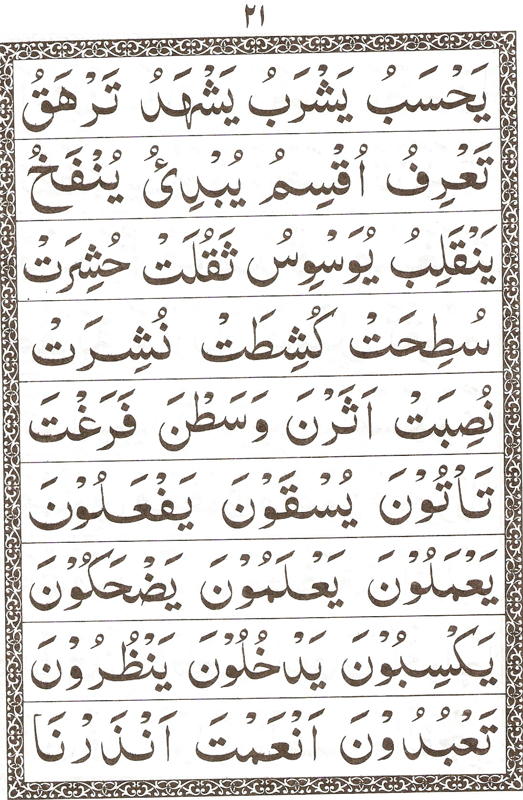 ٢١
يَحْسَبُ يَشْرَبُ يَشْهَدُ تَرْهَقُ
تَعْرِفُ اُقْسِمُ يُبْدِئُ يُنْفَخُ
يَنْقَلِبُ يُوَسْوِسُ ثَقُلَتْ حُشِرَتْ
سُطِحَتْ كُشِطَتْ نُشِرَتْ
نُصِبَتْ اَثَرْنَ وَسَطْنَ فَرَغْتَ
تَأْتُوْنَ يُسْقَوْنَ يَفْعَلُوْنَ
يَعْمَلُوْنَ يَعْلَمُوْنَ يَضْحَكُوْنَ
يَكْسِبُوْنَ يَدْخُلُوْنَ يَنْظُرُوْنَ
تَعْبُدُوْنَ اَنْعَمْتَ اَنْذَرْنَا